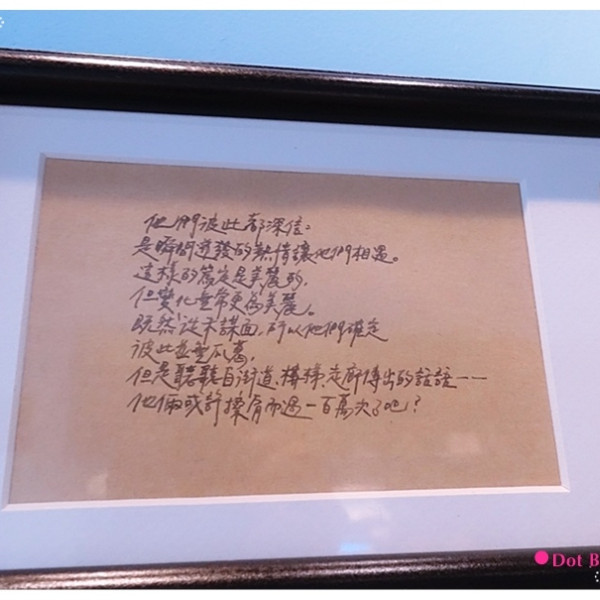 他們彼此都深信：
是瞬間迸發的熱情讓他們相遇。
這樣的篤定是美麗的，
但變化無常更為美麗。
既然從未謀面，所以他們確定
彼此並無瓜葛，
但是聽聽自街道、樓梯、走廊傳出的話語——
他倆或許擦肩而過一百萬次了吧？
Dot B